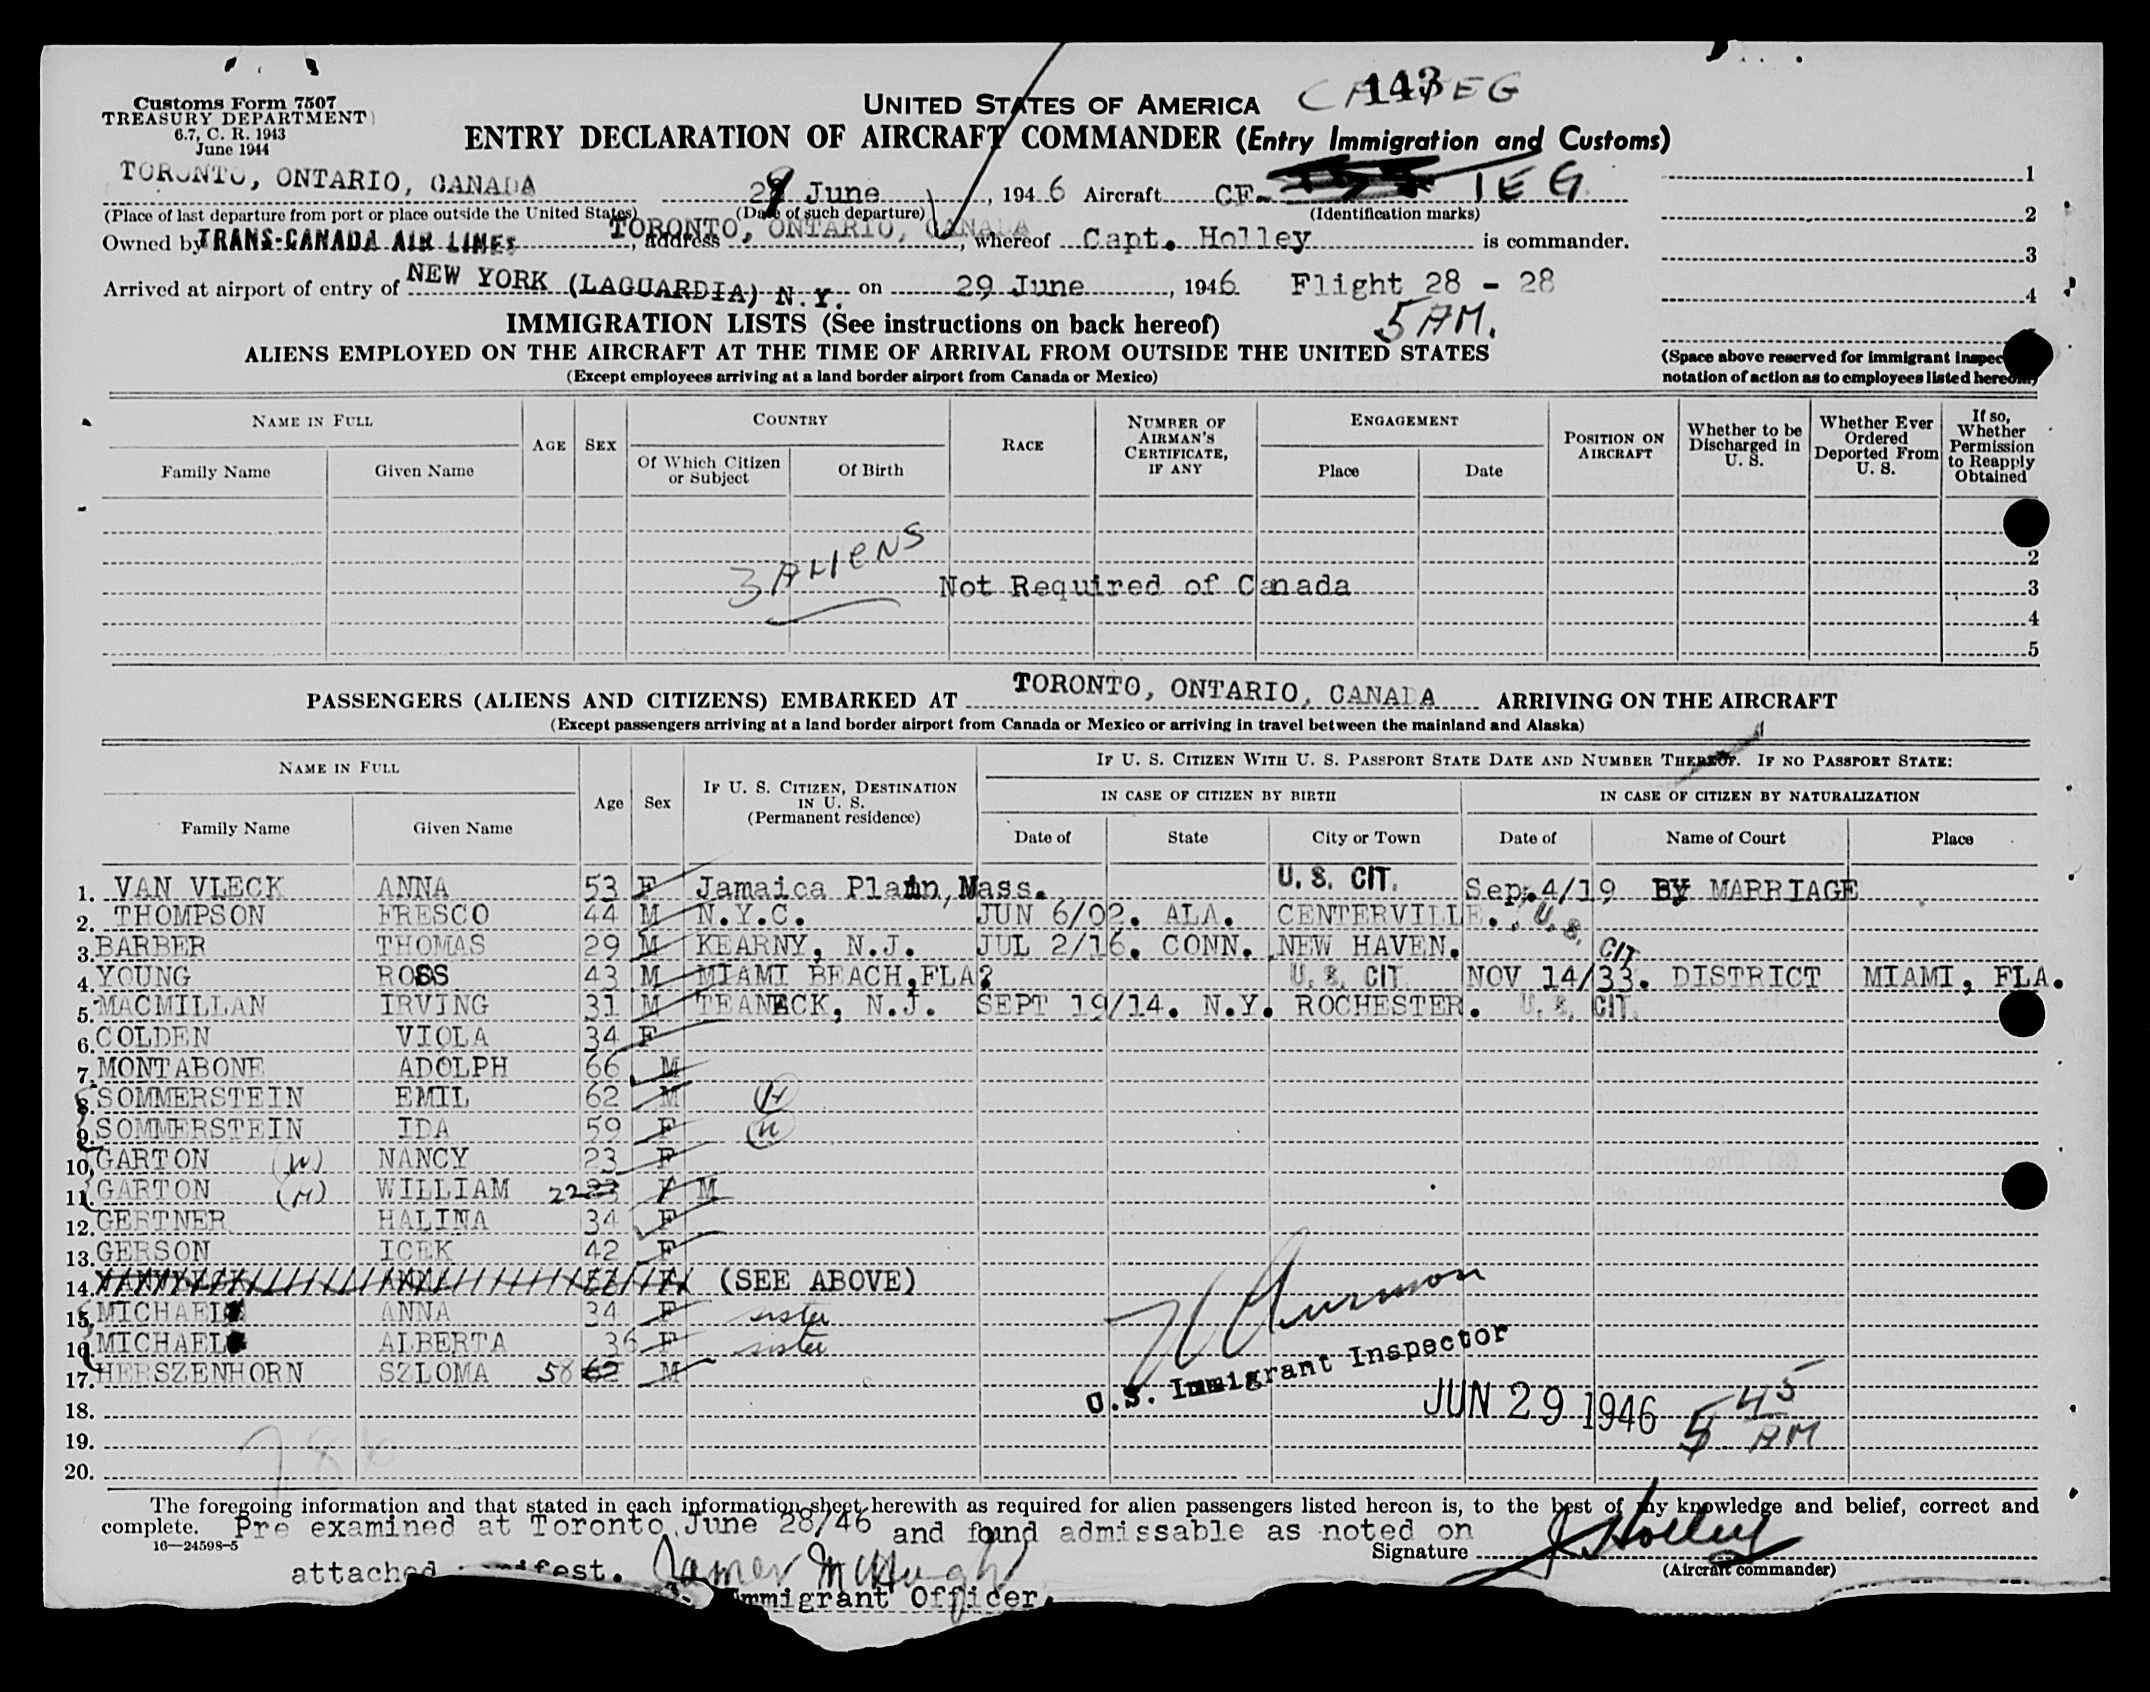 Customs Form 7507
TREASURY DEPARTMENT
6.7, C. R. 1943
June 1944
143
UNITED STATES OF AMERICA
ENTRY DECLARATION OF AIRCRAFT COMMANDER (Entry Immigration and Customs)
TORONTO, ONTARIO, CANADA 29 June, 1946 Aircraft CF- IEG 1
(Place of last departure from port or place outside the United States) (Date of such departure) (Identification marks) 2
Owned by TRANS-CANADA AIR LINES, address TORONTO, ONTARIO, CANADA, whereof Capt. Holley is commander. 3
Arrived at airport of entry of NEW YORK (LAGUARDIA) N.Y. on 29 June, 1946 Flight 28 - 28 4
5 AM.
IMMIGRATION LISTS (See instructions on back hereof)
ALIENS EMPLOYED ON THE AIRCRAFT AT THE TIME OF ARRIVAL FROM OUTSIDE THE UNITED STATES
(Space above reserved for immigrant inspec
(Except employees arriving at a land border airport from Canada or Mexico)
notation of action as to employees listed hereon)
NAME IN FULL AGE SEX COUNTRY RACE NUMBER OF AIRMAN'S CERTIFICATE, IF ANY ENGAGEMENT POSITION ON AIRCRAFT Whether to be Discharged in U. S. Whether Ever Ordered Deported From U. S. If so, Whether Permission to Reapply Obtained
Family Name Given Name Of Which Citizen or Subject Of Birth Place Date
2
3 ALIENS
Not Required of Canada 3
4
5
PASSENGERS (ALIENS AND CITIZENS) EMBARKED AT TORONTO, ONTARIO, CANADA ARRIVING ON THE AIRCRAFT
(Except passengers arriving at a land border airport from Canada or Mexico or arriving in travel between the mainland and Alaska)
NAME IN FULL Age Sex IF U. S. CITIZEN, DESTINATION IN U. S. (Permanent residence) IF U. S. CITIZEN WITH U. S. PASSPORT STATE DATE AND NUMBER THEREOF. IF NO PASSPORT STATE:
IN CASE OF CITIZEN BY BIRTH IN CASE OF CITIZEN BY NATURALIZATION
Family Name Given Name Date of State City or Town Date of Name of Court Place
1. VAN VLECK ANNA 53 F Jamaica Plain, Mass. U. S. CIT. Sep. 4/19 BY MARRIAGE
2. THOMPSON FRESCO 44 M N.Y.C. JUN 6/02. ALA. CENTERVILLE. U. S. CIT
3. BARBER THOMAS 29 M KEARNY, N.J. JUL 2/16. CONN. NEW HAVEN.
4. YOUNG ROSS 43 M MIAMI BEACH, FLA? U. S. CIT NOV 14/33. DISTRICT MIAMI, FLA.
5. MACMILLAN IRVING 31 M TEANECK, N.J. SEPT 19/14. N.Y. ROCHESTER. U. S. CIT.
6. COLDEN VIOLA 34 F
7. MONTABONE ADOLPH 66 M
8. SOMMERSTEIN EMIL 62 M (H)
9. SOMMERSTEIN IDA 59 F (W)
10. GARTON (W) NANCY 23 F
11. GARTON (H) WILLIAM 22 23 F M
12. GERTNER HALINA 34 F
13. GERSON ICEK 42 F
14. (SEE ABOVE)
15. MICHAEL ANNA 34 F sister
16. MICHAEL ALBERTA 36 F sister
17. HERSZENHORN SZLOMA 58 62 M
U.S. Immigrant Inspector
18.
JUN 29 1946 5 45 AM
19.
20.
The foregoing information and that stated in each information sheet herewith as required for alien passengers listed hereon is, to the best of my knowledge and belief, correct and
complete. Pre examined at Toronto June 28/46 and found admissable as noted on
16—24598-5 Signature J Holley
attached manifest. James McHugh (Aircraft commander)
Immigrant Officer.